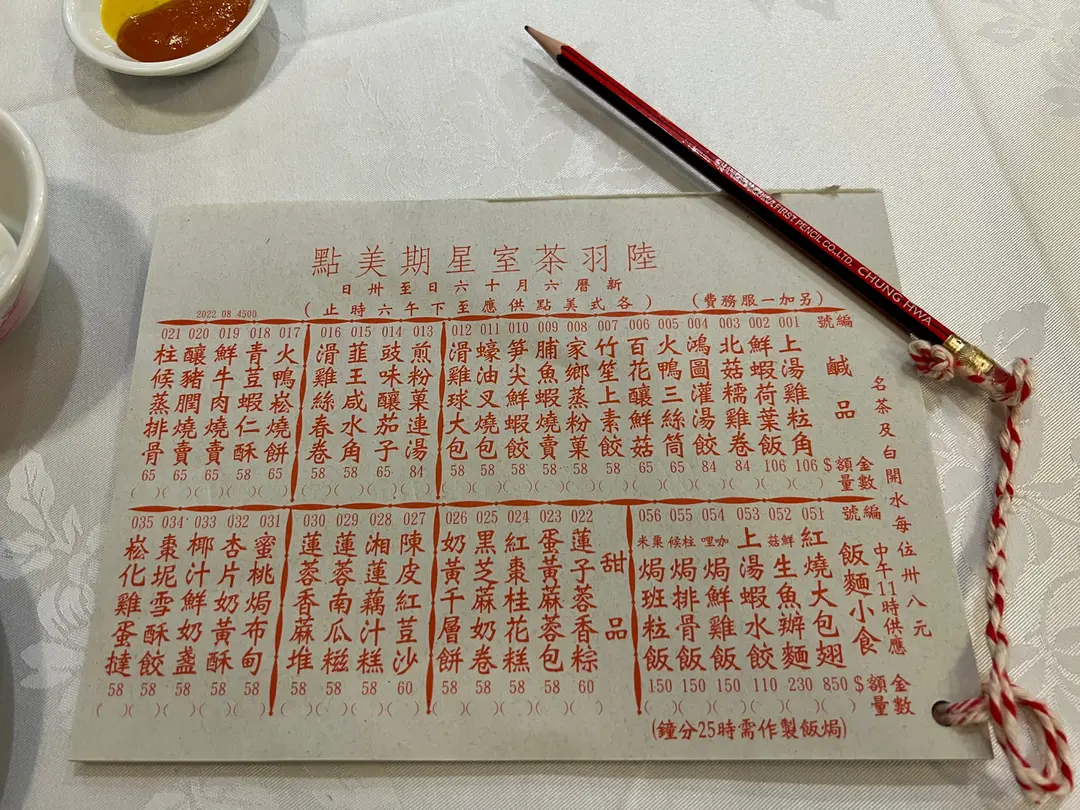 陸羽茶室星期美點
新曆六月十六日至卅日
(各式美點供應至下午六時止)
(另加一服務費)
2022 08 4500
名茶及白開水每位卅八元
中午11時供應
編號 鹹品 金額$ 數量
001 上湯雞粒角 106 ( )
002 鮮蝦荷葉飯 106 ( )
003 北菇糯雞卷 84 ( )
004 鴻圖灌湯餃 84 ( )
005 火鴨三絲筒 65 ( )
006 百花釀鮮菇 65 ( )
007 竹笙上素餃 58 ( )
008 家鄉蒸粉菓 58 ( )
009 脯魚蝦燒賣 58 ( )
010 筍尖鮮蝦餃 58 ( )
011 蠔油叉燒包 58 ( )
012 滑雞球大包 58 ( )
013 煎粉菓連湯 84 ( )
014 豉味釀茄子 65 ( )
015 韮王咸水角 58 ( )
016 滑雞絲春卷 58 ( )
017 火鴨崧燒餅 65 ( )
018 青荳蝦仁酥 58 ( )
019 鮮牛肉燒賣 65 ( )
020 釀豬膶燒賣 65 ( )
021 柱候蒸排骨 65 ( )
編號 飯麵小食 金額$ 數量
051 紅燒大包翅 850 ( )
052 鮮菇生魚辦麵 230 ( )
053 上湯蝦水餃 110 ( )
054 咖哩焗鮮雞飯 150 ( )
055 柱候焗排骨飯 150 ( )
056 粟米焗班粒飯 150 ( )
(焗飯製作需時25分鐘)
甜品
022 蓮子蓉香粽 60 ( )
023 蛋黃麻蓉包 58 ( )
024 紅棗桂花糕 58 ( )
025 黑芝麻奶卷 58 ( )
026 奶黃千層餅 58 ( )
027 陳皮紅荳沙 60 ( )
028 湘蓮藕汁糕 58 ( )
029 蓮蓉南瓜糍 58 ( )
030 蓮蓉香蔴堆 58 ( )
031 蜜桃焗布甸 58 ( )
032 杏片奶黃酥 58 ( )
033 椰汁鮮奶盞 58 ( )
034 棗坭雪酥餃 58 ( )
035 崧化雞蛋撻 58 ( )
FIRST PENCIL CO.,LTD. CHUNG HWA